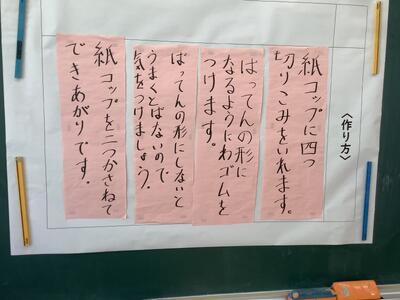 〈作り方〉
紙コップに四つ
切りこみをいれます。
ばってんの形に
なるようにわゴムを
つけます。
ばってんの形にしないと
うまくとばないので
気をつけましょう。
紙コップを二つかさねて
できあがりです。